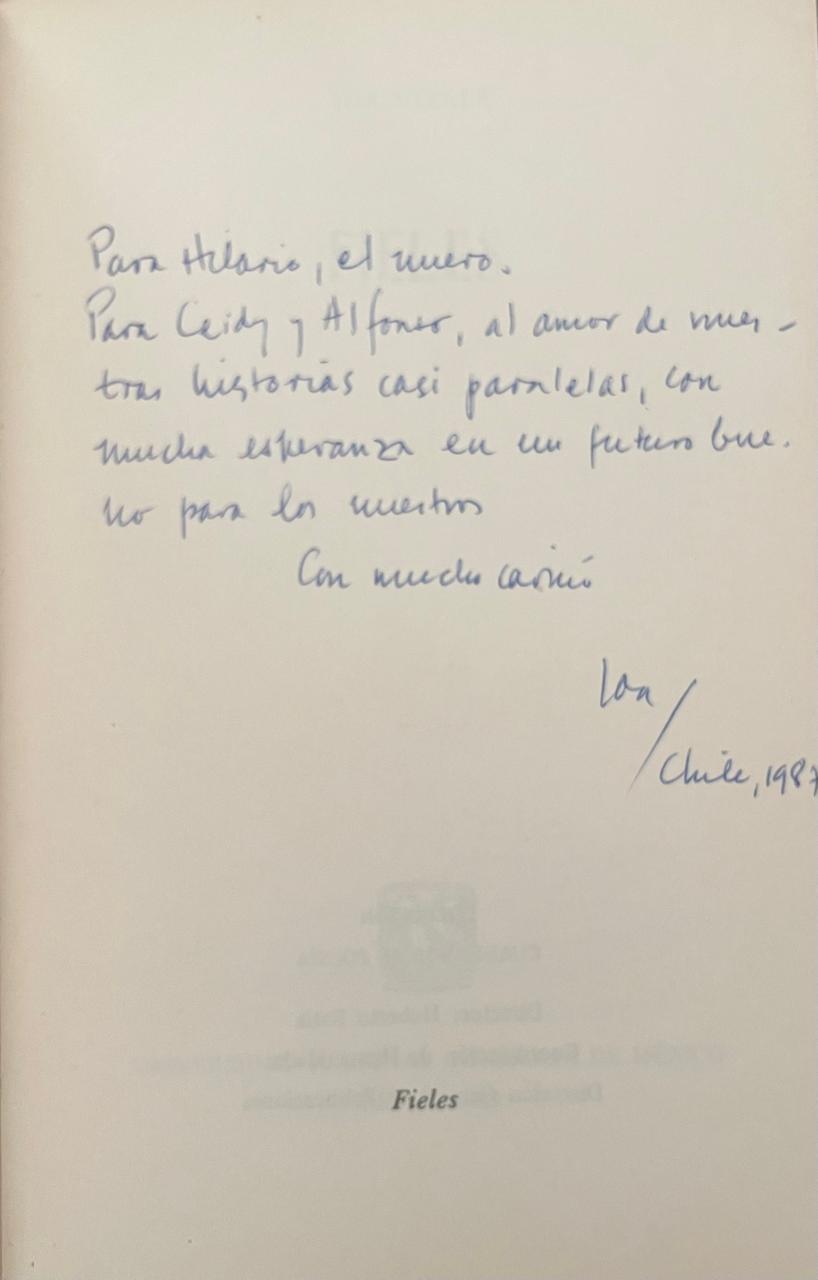 Para Hilario, el nuevo.
Para y Alfonso, al amor de nues-
tras historias casi paralelas, con
mucha esperanza en un futuro bue-
no para los nuestros
Con mucho cariño
Chile, 1987
Fieles